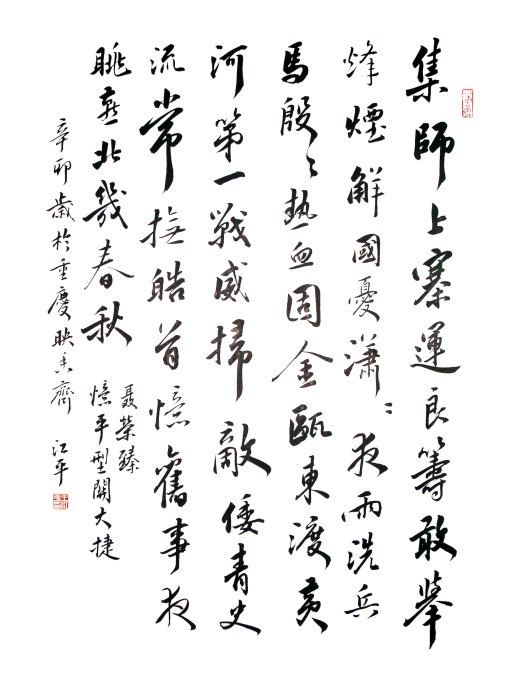 集師上寨運良籌敢舉
烽煙解國憂瀟〻夜雨洗兵
馬殷〻熱血固金甌東渡黃
河第一戰威掃敵倭青史
流常撫皓首憶舊事夜
眺燕北幾春秋
聶榮臻
憶平型關大捷
辛卯歲於重慶映齋 江平